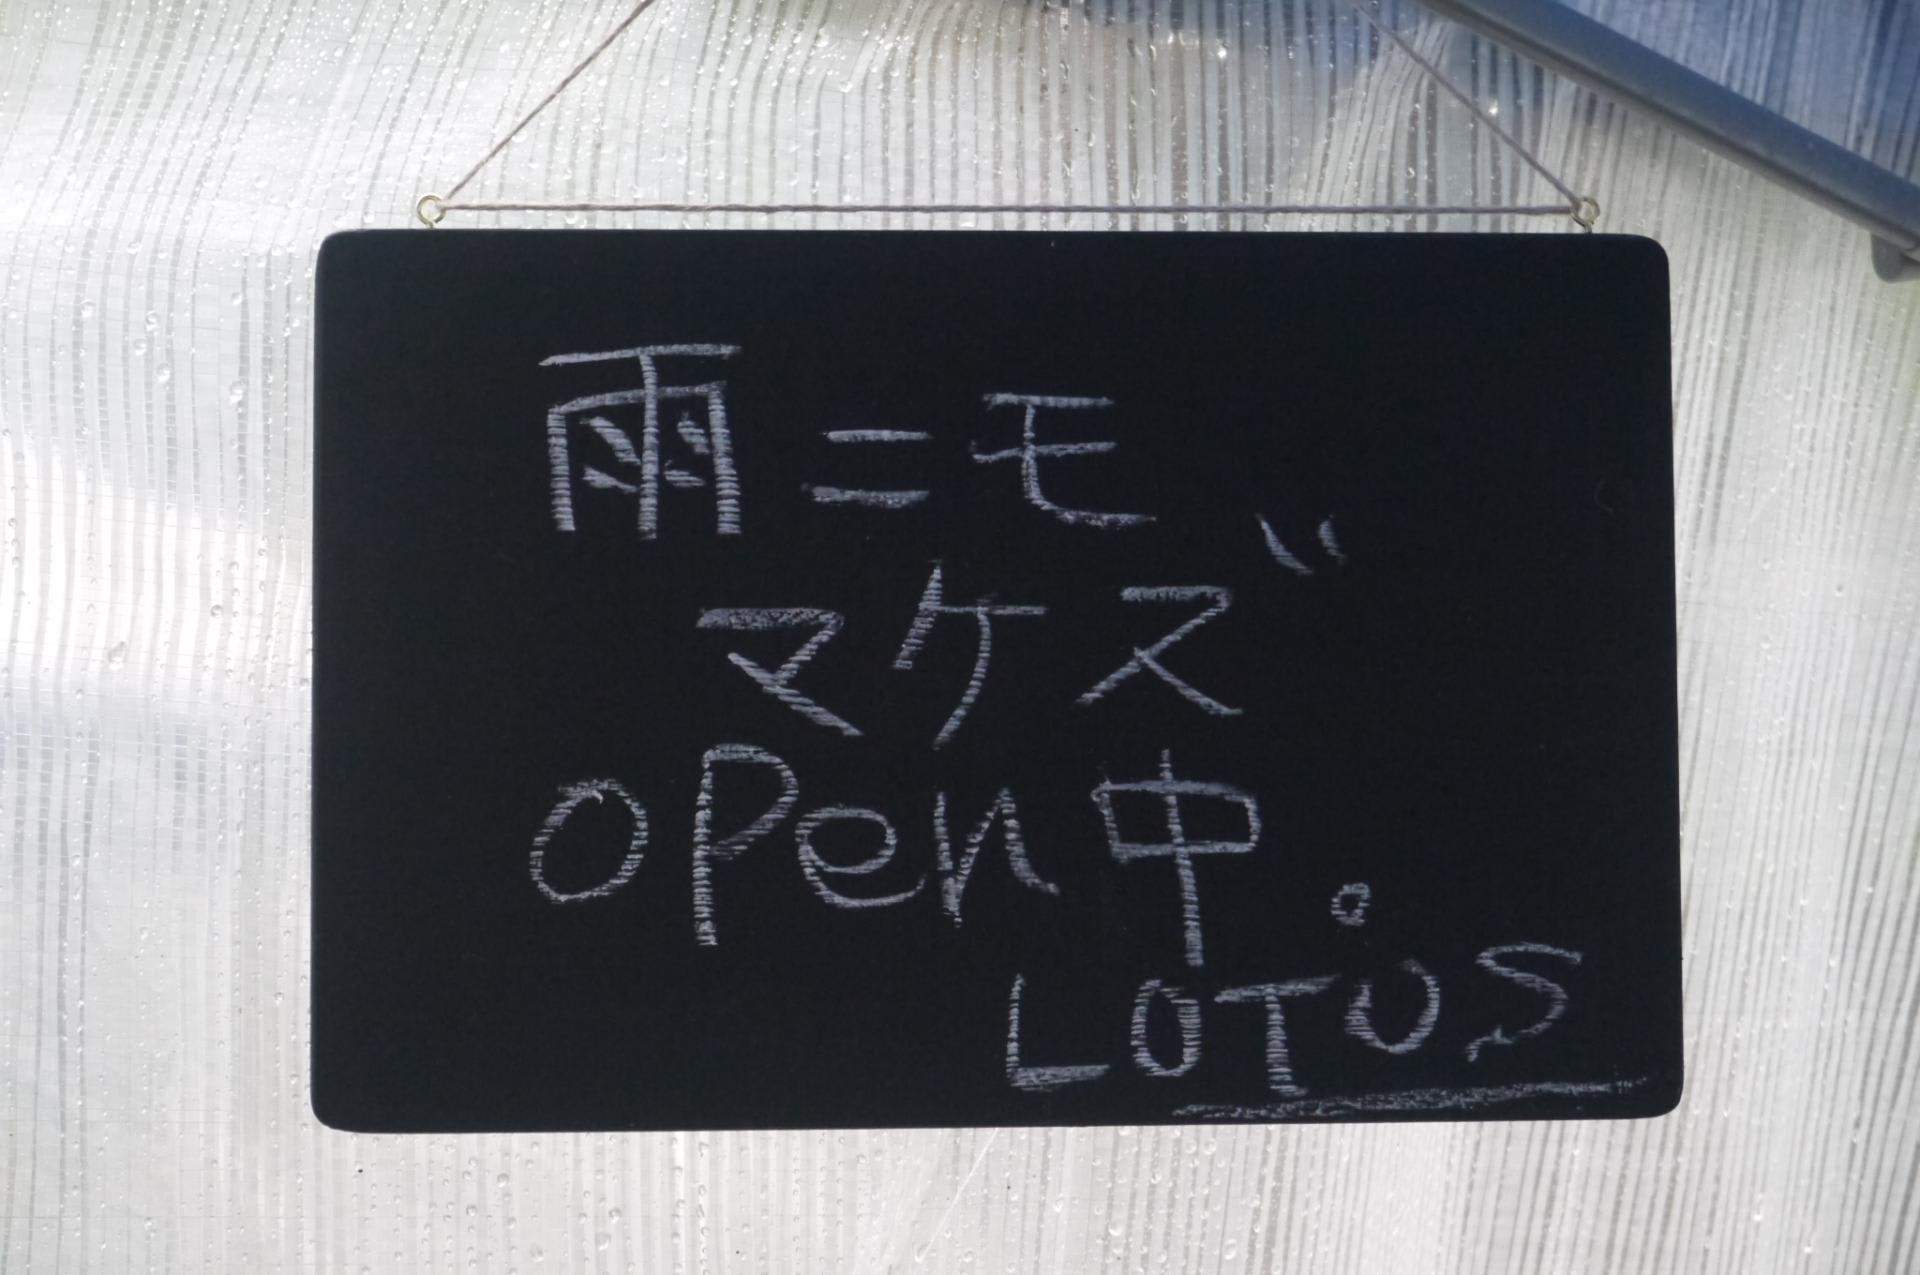 雨ニモ
マケズ
open中。
LOTUS